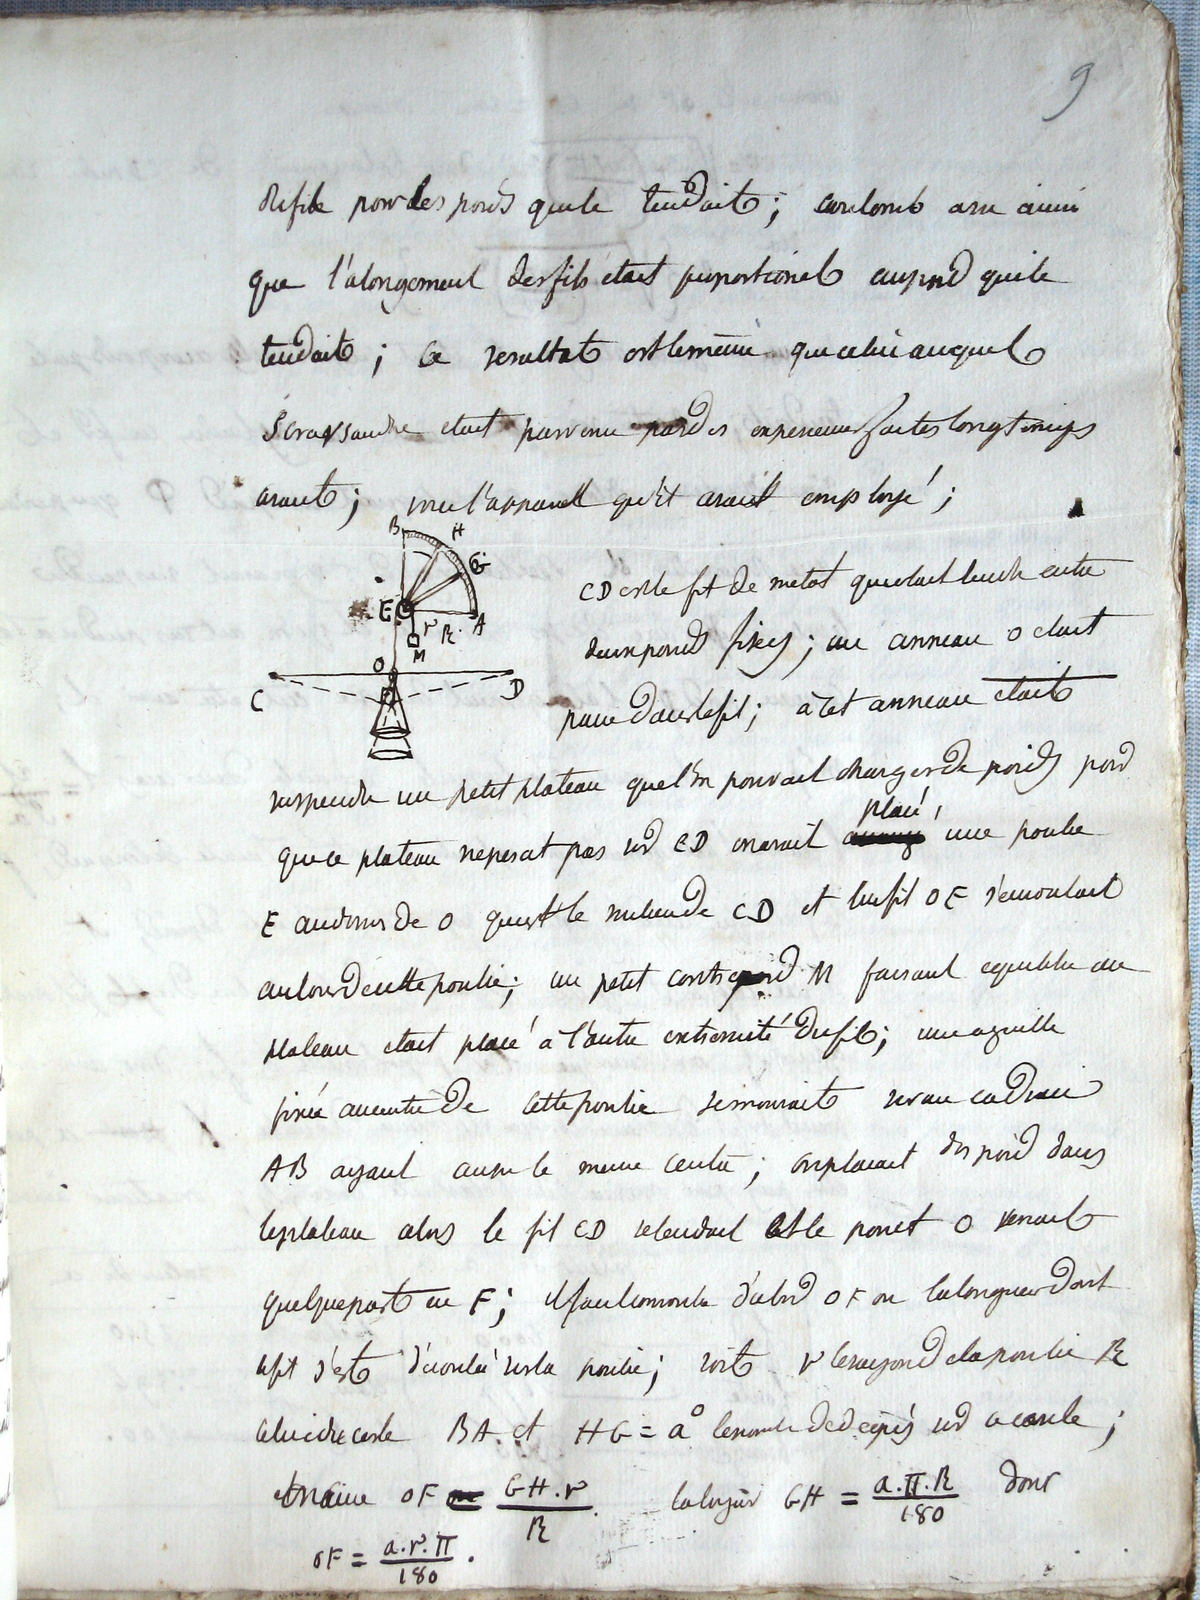 9
des fils pour les poids qui le tendait ; coulomb a vu ainsi
que l'alongement des fils etait proportionel au poid qui le
tendait ; Ce resultat est le même que celui auquel
S'Gravsande etait parvenu par des experiences faites longtemps
avant ; voici l'appareil qu'il avait employé ;
B H G E r R A M O C D F
CD est le fil de metal qui etait tendu entre
deux points fixes ; un anneau O etait
passé dans le fil ; à cet anneau etait
suspendu un petit plateau que l'on pouvait charger de poids pour
que ce plateau ne pesat pas sur CD on avait placé, une poulie
E au dessus de O qui est le milieu de CD et le fil OE s'enroulait
autour de cette poulie ; un petit contrepoid M faisant equilibre au
plateau etait placé à l'autre extremité du fil ; une aiguille
fixée au centre de cette poulie se mouvait sur un cadran
AB ayant aussi le meme centre ; on placait des poid dans
le plateau alors le fil CD se tendait et le point O venait
quelque part en F ; il faut connoitre d'abord OF ou la longueur dont
le fil s'est déroulé sur la poulie ; soit r le rayon de la poulie R
celui du cercle BA et HG = a° le nombre de degrés sur ce cercle ;
on aura OF = GH.r / R la longueur GH = a.π.R / 180 donc
OF = a.r.π / 180 .